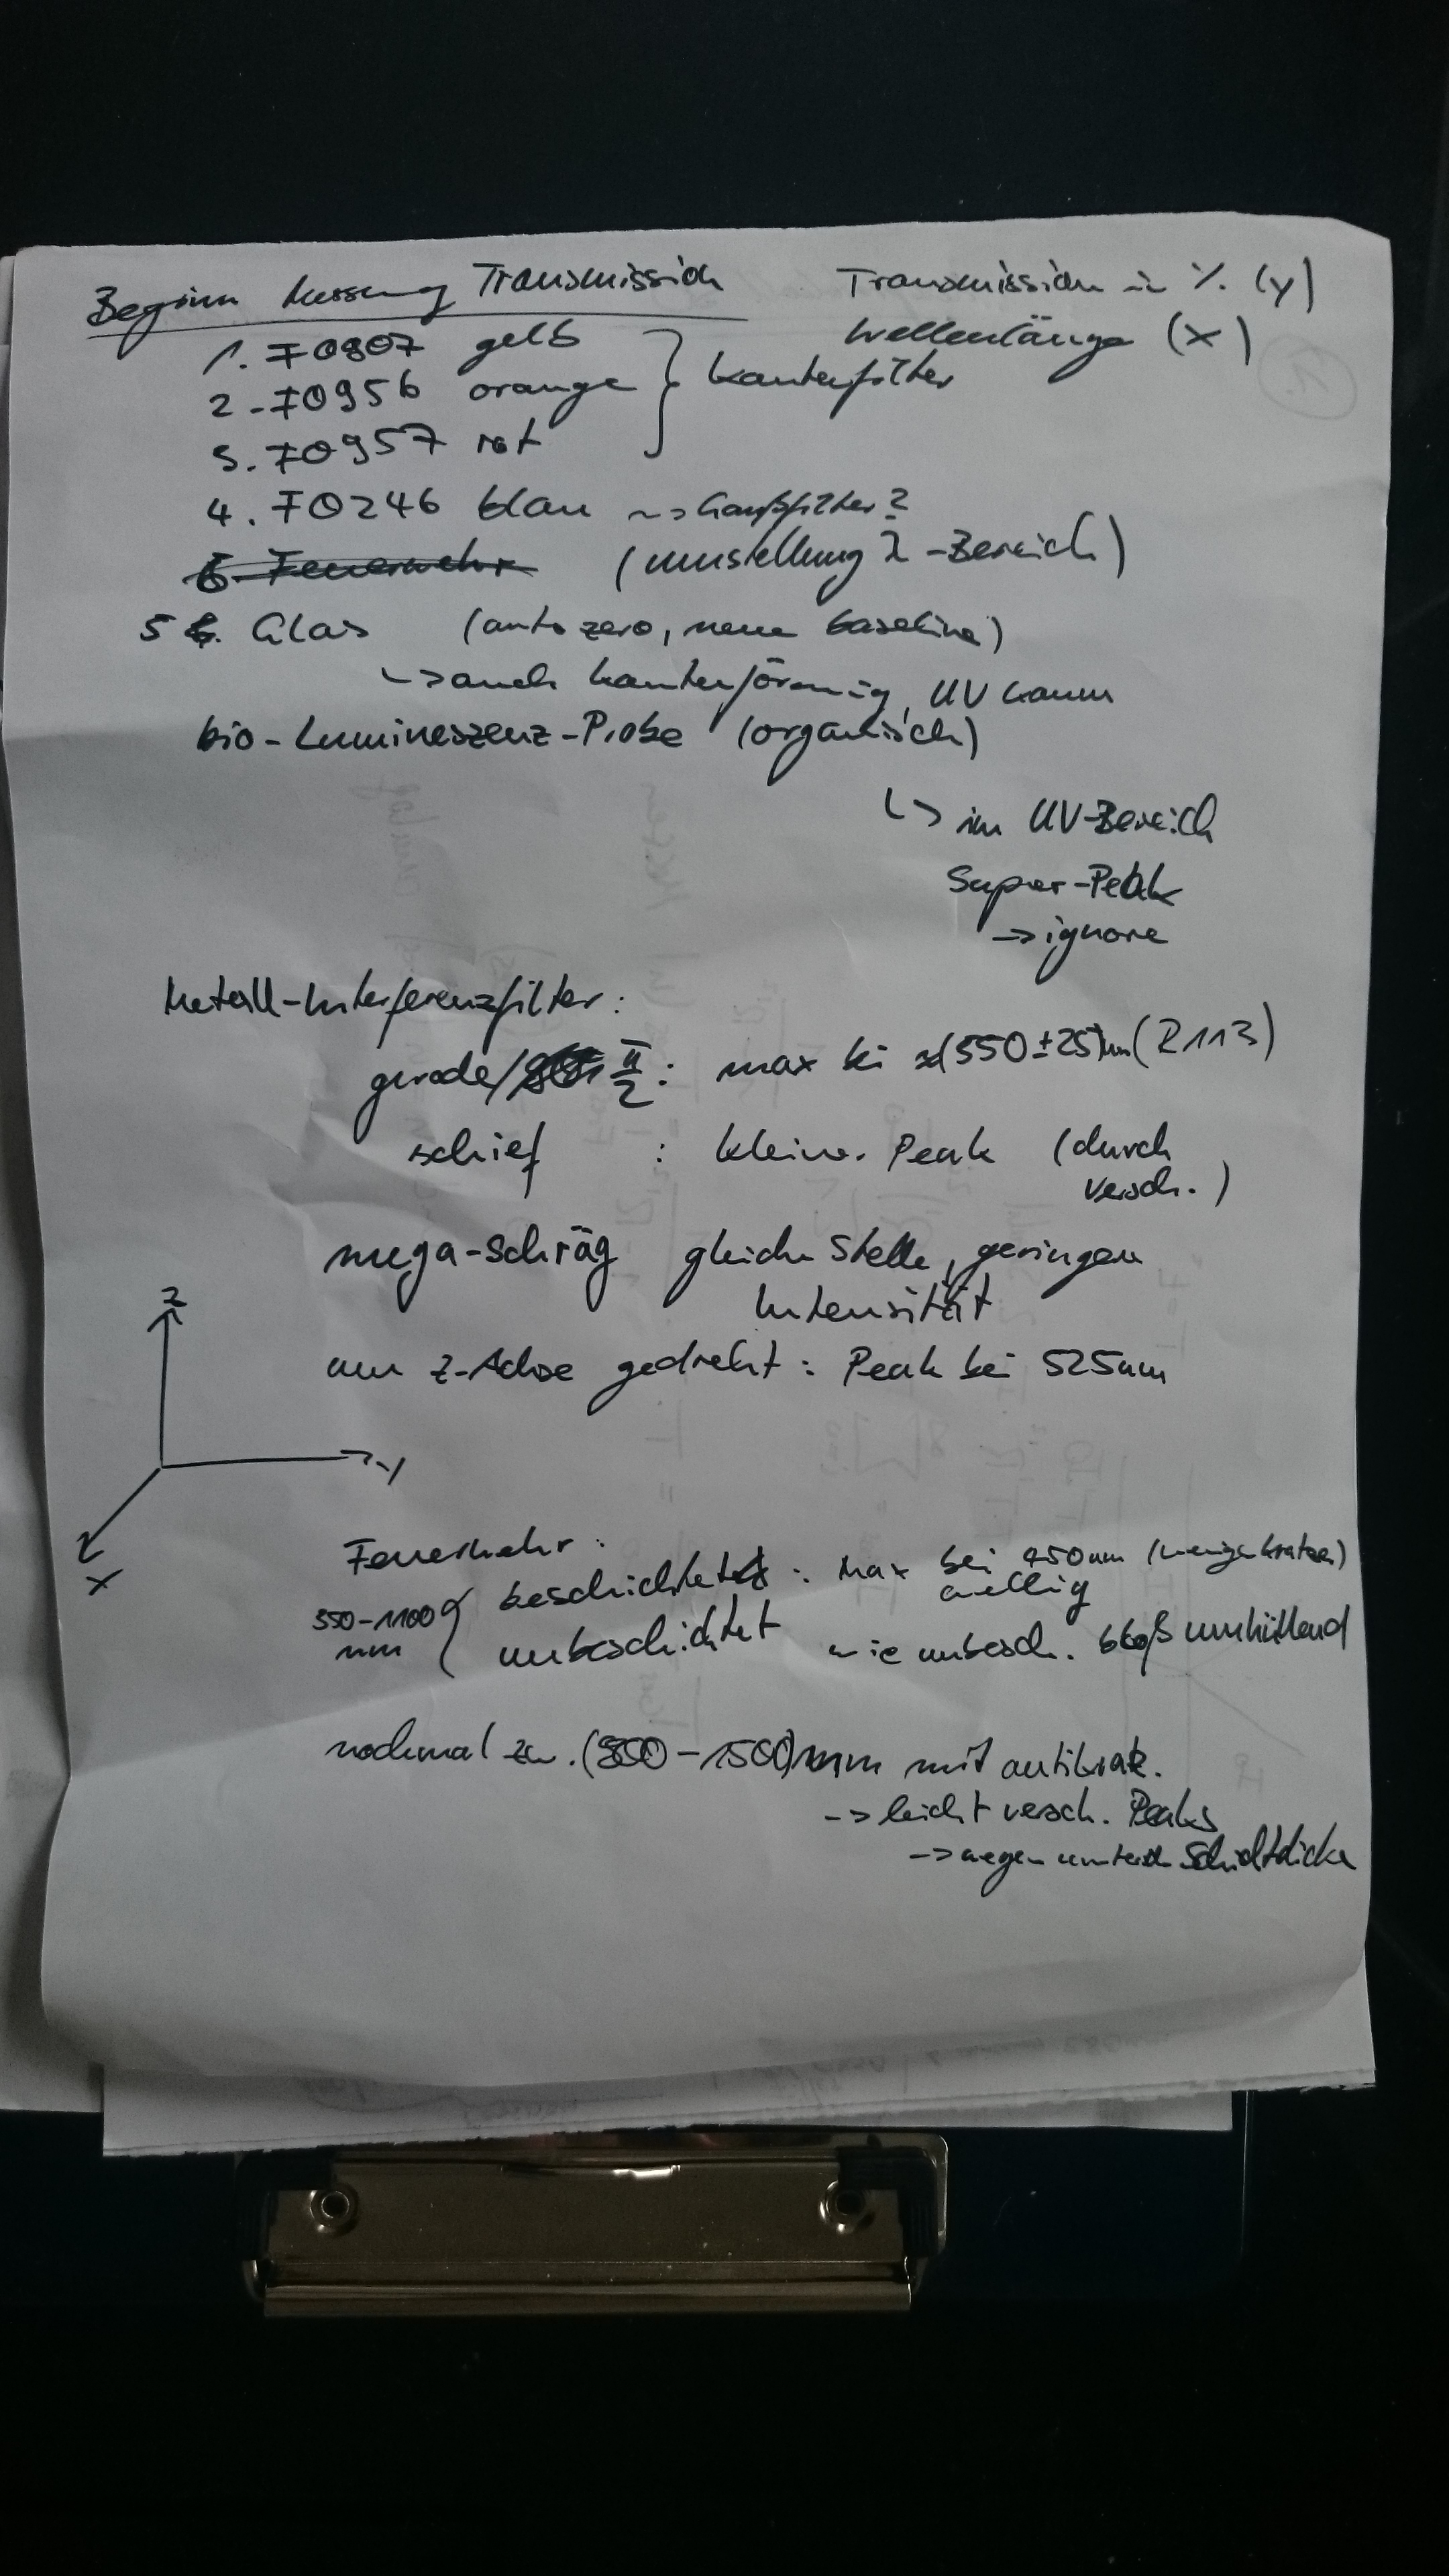 Beginn Messung Transmission
Transmission in % (y)
Wellenlänge (x)
1.
1. F0807 gelb
2. F0956 orange } Kantenfilter
3. F0957 rot
4. F0246 blau ~> Gaußfilter?
6. Feuerwehr (Umstellung λ-Bereich)
5 6. Glas (auto zero, neue baseline)
↳ auch kantenförmig, UV kaum
bio-Lumineszenz-Probe (organisch)
↳ im UV-Bereich
Super-Peak
→ ignore
Metall-Interferenzfilter:
gerade/ π/2 : max bei (550±25)nm (R113)
schief : kleiner Peak (durch
versch.)
mega-schräg gleiche Stelle, geringere
Intensität
um z-Achse gedreht : Peak bei 525nm
z
y
x
Feuerwehr:
350-1100 nm { beschichtet : Max bei 950nm (weniger kratzer)
wellig
unbeschichtet wie unbesch. bloß umhüllend
nochmal zw. (800-1500)nm mit antikratz.
→ leicht versch. Peaks
→ wegen untersch Schichtdicke